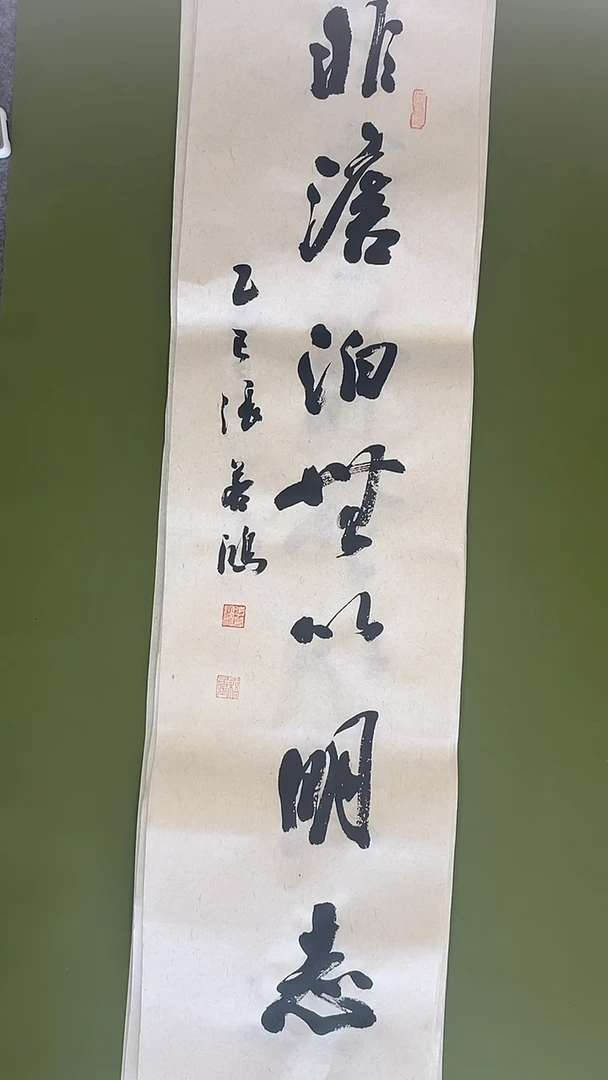 非澹泊無以明志
乙巳張若鴻